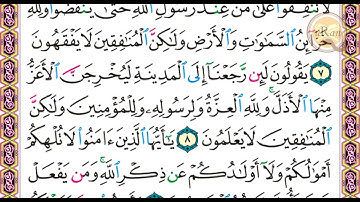 لَا تُنفِقُوا۟ عَلَىٰ مَنْ عِندَ رَسُولِ ٱللَّهِ حَتَّىٰ يَنفَضُّوا۟ وَلِلَّهِ
خَزَآئِنُ ٱلسَّمَٰوَٰتِ وَٱلْأَرْضِ وَلَٰكِنَّ ٱلْمُنَٰفِقِينَ لَا يَفْقَهُونَ
٧ يَقُولُونَ لَئِن رَّجَعْنَآ إِلَى ٱلْمَدِينَةِ لَيُخْرِجَنَّ ٱلْأَعَزُّ
مِنْهَا ٱلْأَذَلَّ وَلِلَّهِ ٱلْعِزَّةُ وَلِرَسُولِهِۦ وَلِلْمُؤْمِنِينَ وَلَٰكِنَّ
ٱلْمُنَٰفِقِينَ لَا يَعْلَمُونَ ٨ يَٰٓأَيُّهَا ٱلَّذِينَ ءَامَنُوا۟ لَا تُلْهِكُمْ
أَمْوَٰلُكُمْ وَلَآ أَوْلَٰدُكُمْ عَن ذِكْرِ ٱللَّهِ وَمَن يَفْعَلْ